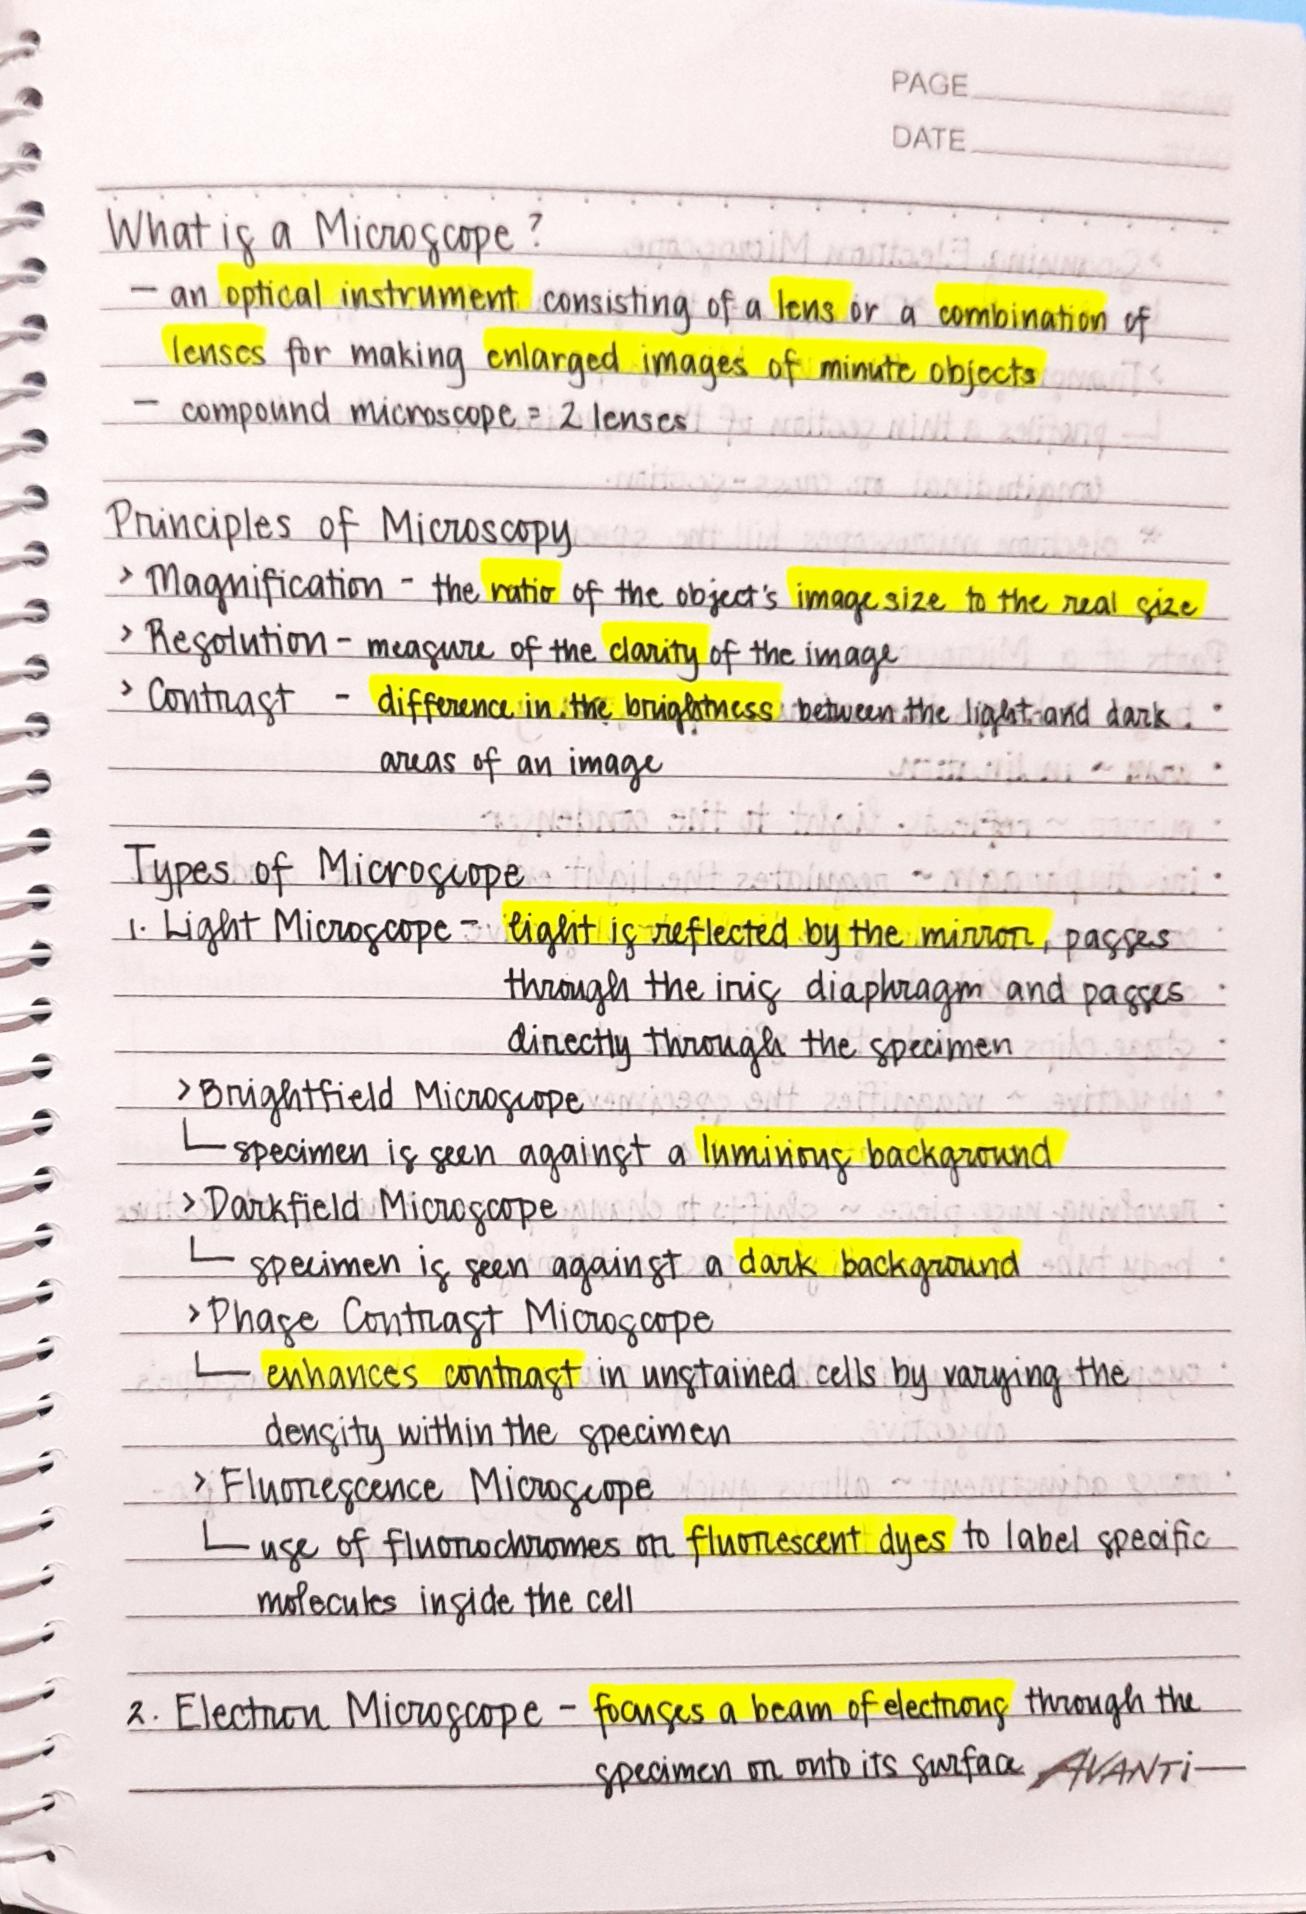 PAGE
DATE
What is a Microscope?
- an optical instrument consisting of a lens or a combination of
lenses for making enlarged images of minute objects
- compound microscope = 2 lenses
Principles of Microscopy
> Magnification - the ratio of the object's image size to the real size
> Resolution - measure of the clarity of the image
> Contrast - difference in the brightness between the light and dark
areas of an image
Types of Microscope
1. Light Microscope - light is reflected by the mirror, passes
through the iris diaphragm and passes
directly through the specimen
> Brightfield Microscope
└ specimen is seen against a luminous background
> Darkfield Microscope
└ specimen is seen against a dark background
> Phase Contrast Microscope
└ enhances contrast in unstained cells by varying the
density within the specimen
> Fluorescence Microscope
└ use of fluorochromes or fluorescent dyes to label specific
molecules inside the cell
2. Electron Microscope - focuses a beam of electrons through the
specimen or onto its surface AVANTi